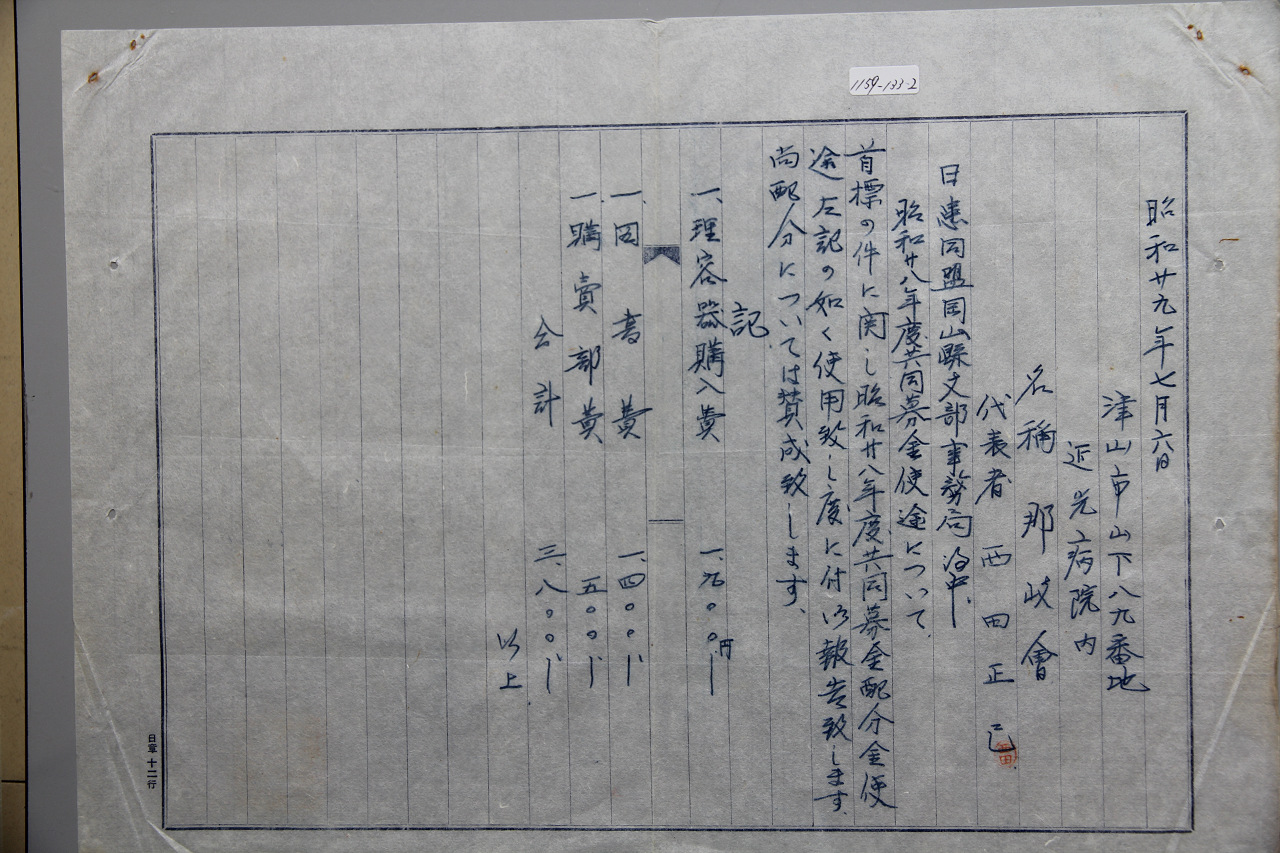 1159-133-2
昭和廿九年七月六日
津山市山下八九番地
近光病院内
名稱 那岐會
代表者 西田正己
日患同盟岡山縣支部事務局 御中、
昭和廿八年度共同募金使途について、
首標の件に関し昭和廿八年度共同募金配分金使
途左記の如く使用致し度に付御報告致します、
尚配分については賛成致します、
記
一、理容器購入費 一、九〇〇円ー
一、図書費 一、四〇〇ー
一、購賣部費 五〇〇ー
合計 三、八〇〇ー
以上
日章 十二行